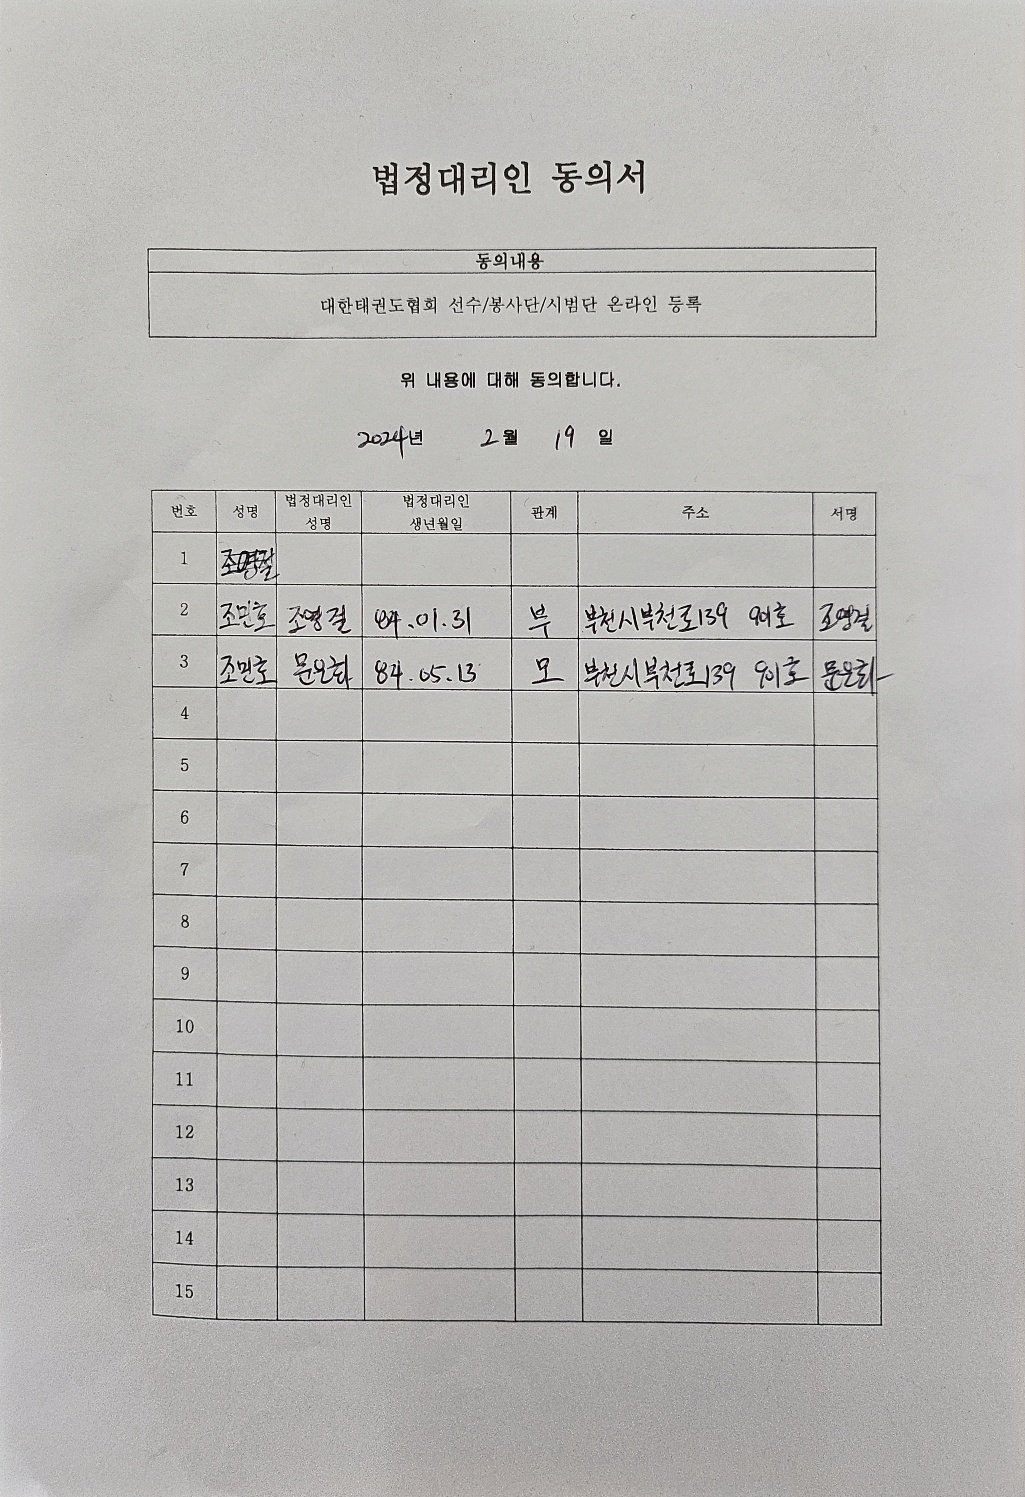 법정대리인 동의서
동의내용
대한태권도협회 선수/봉사단/시범단 온라인 등록
위 내용에 대해 동의합니다.
2024년 2월 19일
번호 성명 법정대리인 성명 법정대리인 생년월일 관계 주소 서명
1
2 조민호 조영걸 84.01.31 부 부천시부천로139 901호 조영걸
3 조민호 문은화 84.05.13 모 부천시부천로139 901호 문은화
4
5
6
7
8
9
10
11
12
13
14
15